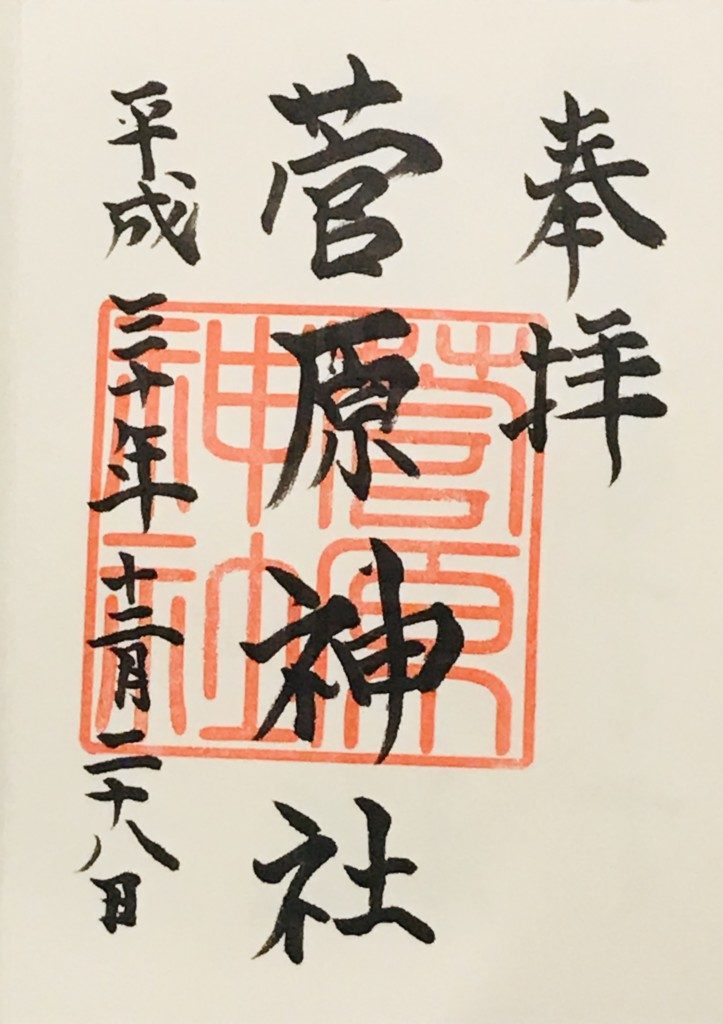 奉拝
菅原神社
平成三十年十二月二十八日
菅原神社